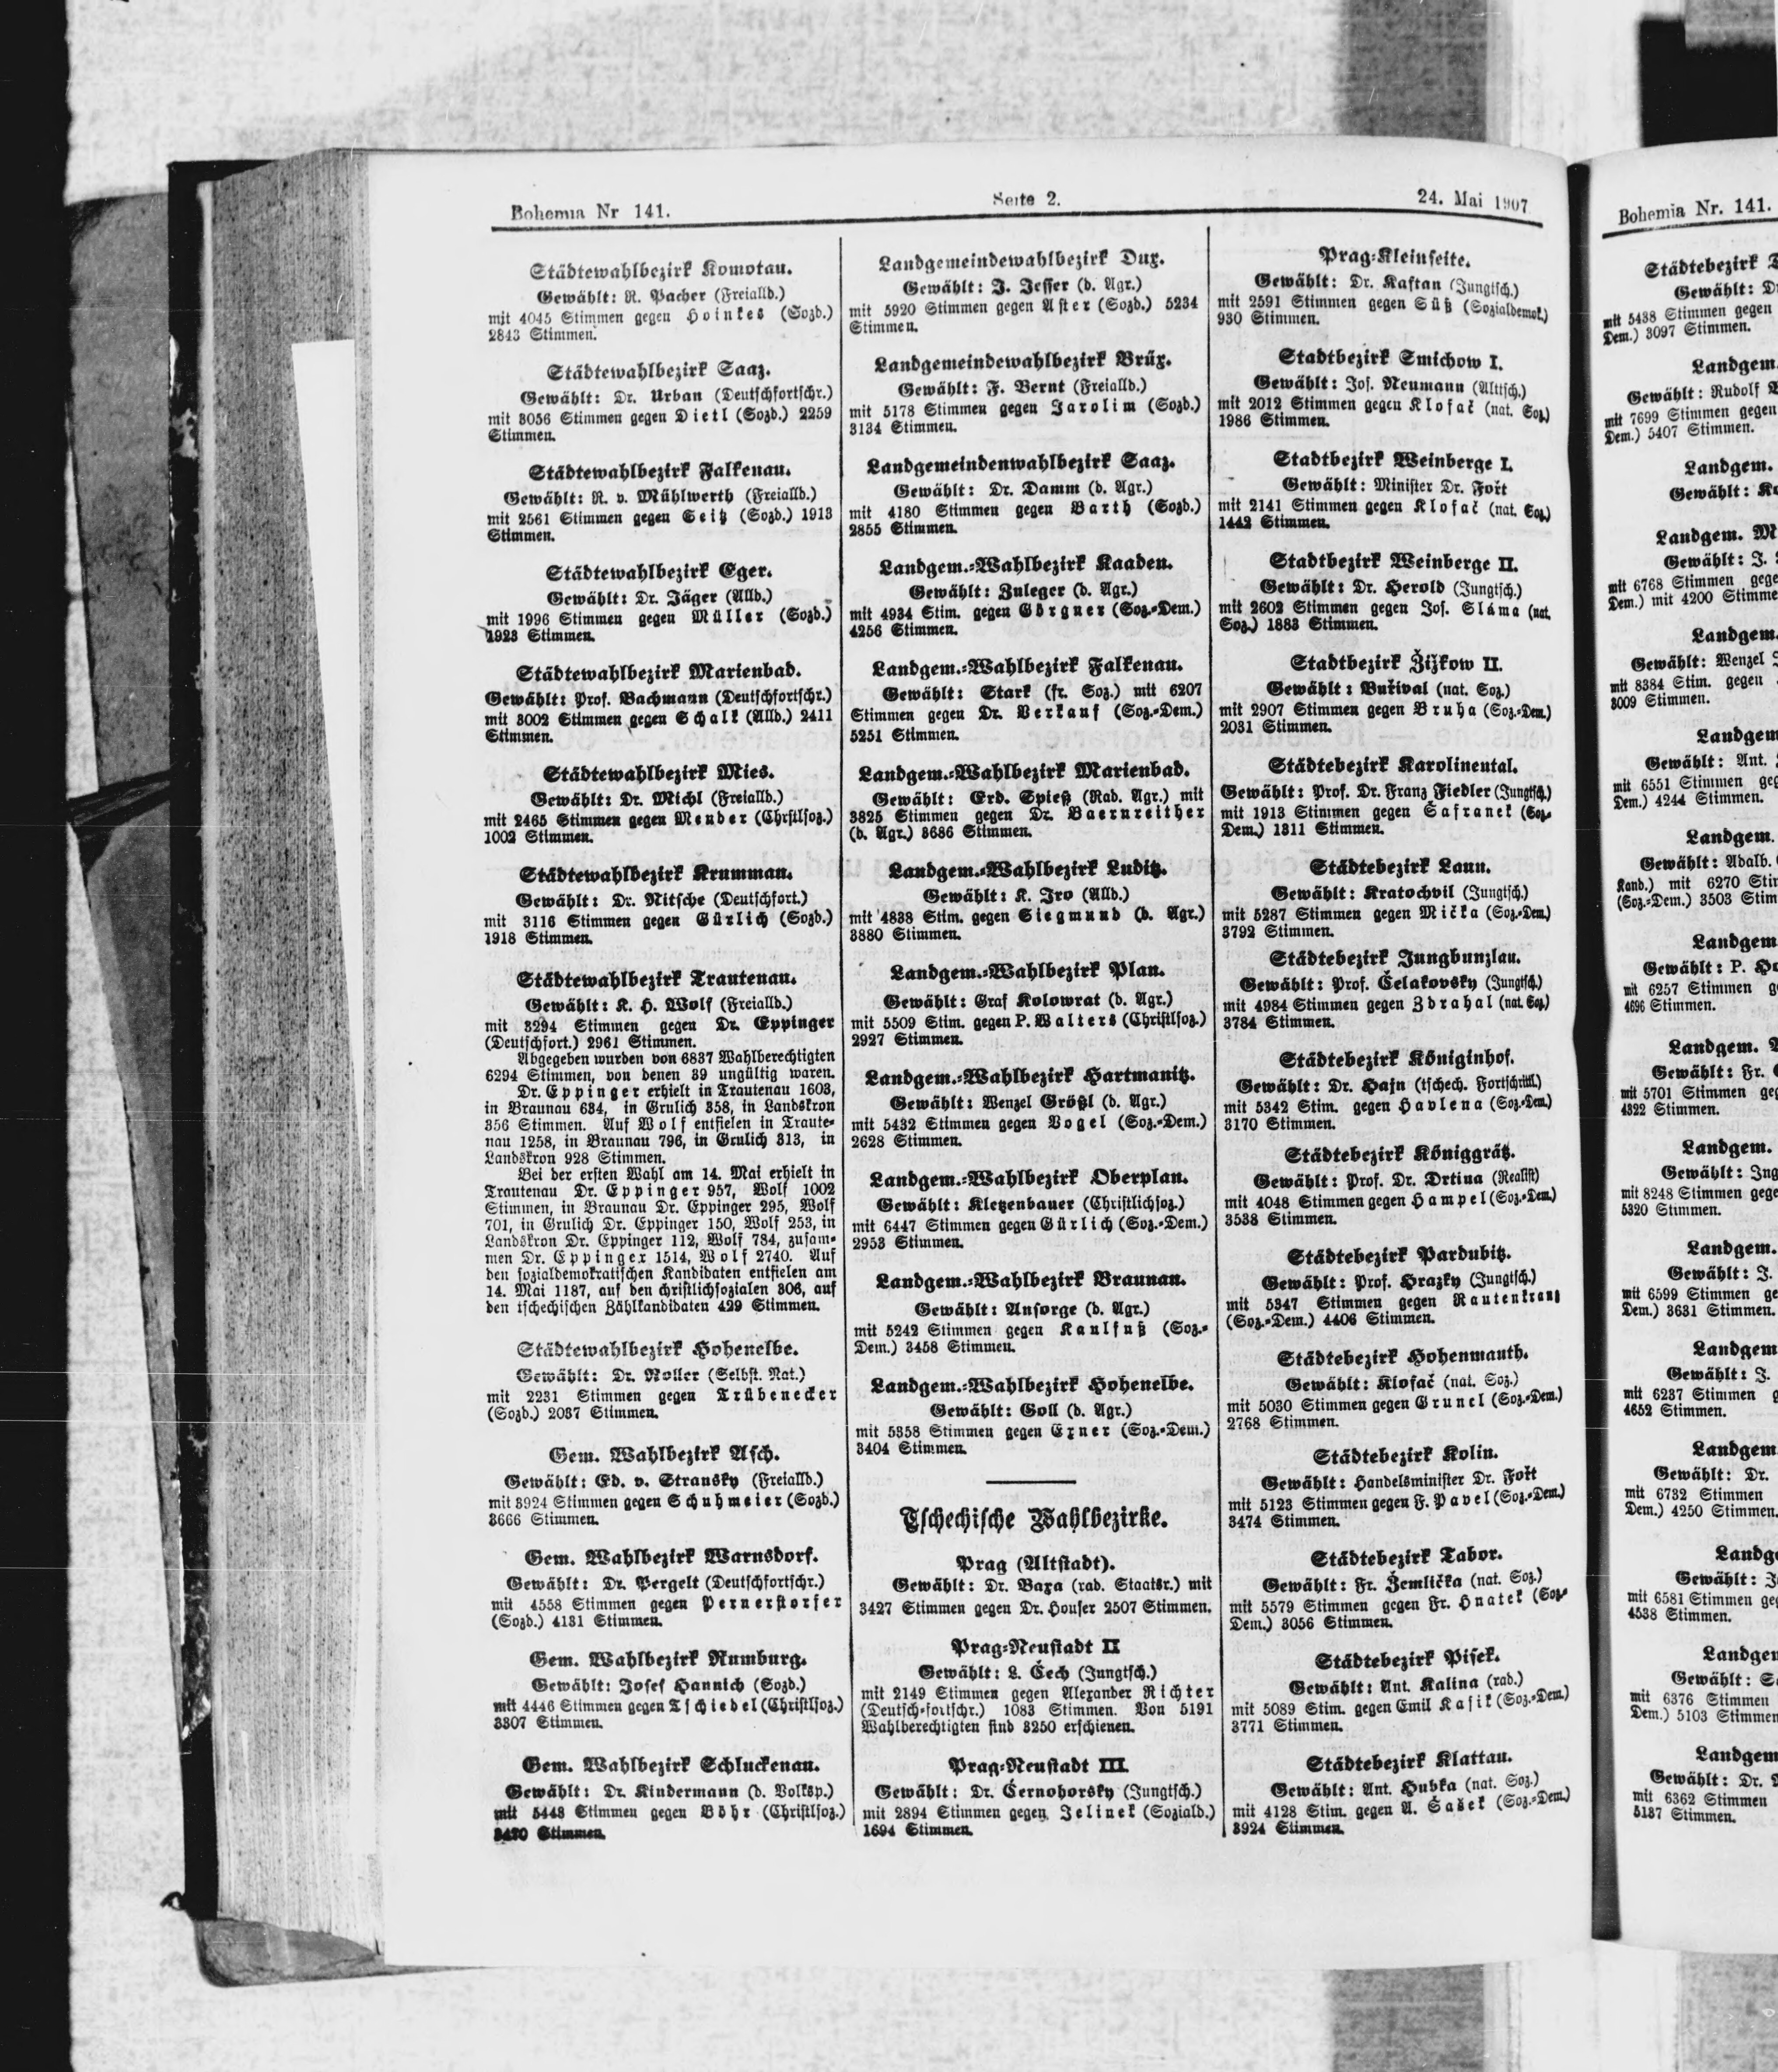 Bohemia Nr 141.
Seite 2.
24. Mai 1907
Städtewahlbezirk Komotau.
Gewählt: R. Pacher (Freialld.)
mit 4045 Stimmen gegen Hoinkes (Sozd.)
2843 Stimmen.
Städtewahlbezirk Saaz.
Gewählt: Dr. Urban (Deutschfortschr.)
mit 3056 Stimmen gegen Dietl (Sozd.) 2259
Stimmen.
Städtewahlbezirk Falkenau.
Gewählt: R. v. Mühlwerth (Freialld.)
mit 2561 Stimmen gegen Seitz (Sozd.) 1913
Stimmen.
Städtewahlbezirk Eger.
Gewählt: Dr. Jäger (Alld.)
mit 1996 Stimmen gegen Müller (Sozd.)
1923 Stimmen.
Städtewahlbezirk Marienbad.
Gewählt: Prof. Bachmann (Deutschfortschr.)
mit 3002 Stimmen gegen Schalk (Alld.) 2411
Stimmen.
Städtewahlbezirk Mies.
Gewählt: Dr. Michl (Freialld.)
mit 2465 Stimmen gegen Mender (Chrstlsoz.)
1002 Stimmen.
Städtewahlbezirk Krummau.
Gewählt: Dr. Nitsche (Deutschfort.)
mit 3116 Stimmen gegen Gürlich (Sozd.)
1918 Stimmen.
Städtewahlbezirk Trautenau.
Gewählt: K. H. Wolf (Freialld.)
mit 3294 Stimmen gegen Dr. Eppinger
(Deutschfort.) 2961 Stimmen.
Abgegeben wurden von 6837 Wahlberechtigten
6294 Stimmen, von denen 39 ungültig waren.
Dr. Eppinger erhielt in Trautenau 1603,
in Braunau 634, in Grulich 358, in Landskron
356 Stimmen. Auf Wolf entfielen in Traute-
nau 1258, in Braunau 796, in Grulich 313, in
Landskron 928 Stimmen.
Bei der ersten Wahl am 14. Mai erhielt in
Trautenau Dr. Eppinger 957, Wolf 1002
Stimmen, in Braunau Dr. Eppinger 295, Wolf
701, in Grulich Dr. Eppinger 150, Wolf 253, in
Landskron Dr. Eppinger 112, Wolf 784, zusam-
men Dr. Eppinger 1514, Wolf 2740. Auf
den sozialdemokratischen Kandidaten entfielen am
14. Mai 1187, auf den christlichsozialen 306, auf
den tschechischen Zählkandidaten 429 Stimmen.
Städtewahlbezirk Hohenelbe.
Gewählt: Dr. Roller (Selbst. Nat.)
mit 2231 Stimmen gegen Trübenecker
(Sozd.) 2037 Stimmen.
Gem. Wahlbezirk Asch.
Gewählt: Ed. v. Stransky (Freialld.)
mit 3924 Stimmen gegen Schuhmeier (Sozd.)
3666 Stimmen.
Gem. Wahlbezirk Warnsdorf.
Gewählt: Dr. Pergelt (Deutschfortschr.)
mit 4558 Stimmen gegen Pernerstorfer
(Sozd.) 4131 Stimmen.
Gem. Wahlbezirk Rumburg.
Gewählt: Josef Hannich (Sozd.)
mit 4446 Stimmen gegen Tschiedel (Christlsoz.)
3307 Stimmen.
Gem. Wahlbezirk Schluckenau.
Gewählt: Dr. Kindermann (d. Volksp.)
mit 5448 Stimmen gegen Böhr (Christlsoz.)
3420 Stimmen.
Landgemeindewahlbezirk Dux.
Gewählt: J. Jesser (d. Agr.)
mit 5920 Stimmen gegen Aster (Sozd.) 5234
Stimmen.
Landgemeindewahlbezirk Brüx.
Gewählt: F. Bernt (Freialld.)
mit 5178 Stimmen gegen Jarolim (Sozd.)
3134 Stimmen.
Landgemeindenwahlbezirk Saaz.
Gewählt: Dr. Damm (d. Agr.)
mit 4180 Stimmen gegen Barth (Sozd.)
2855 Stimmen.
Landgem.-Wahlbezirk Kaaden.
Gewählt: Zuleger (d. Agr.)
mit 4934 Stim. gegen Görgner (Soz.-Dem.)
4256 Stimmen.
Landgem.-Wahlbezirk Falkenau.
Gewählt: Stark (fr. Soz.) mit 6207
Stimmen gegen Dr. Verkauf (Soz.-Dem.)
5251 Stimmen.
Landgem.-Wahlbezirk Marienbad.
Gewählt: Erd. Spieß (Rad. Agr.) mit
3825 Stimmen gegen Dr. Baernreither
(d. Agr.) 3686 Stimmen.
Landgem.-Wahlbezirk Luditz.
Gewählt: K. Iro (Alld.)
mit 4838 Stim. gegen Siegmund (d. Agr.)
3880 Stimmen.
Landgem.-Wahlbezirk Plan.
Gewählt: Graf Kolowrat (d. Agr.)
mit 5509 Stim. gegen P. Walters (Christlsoz.)
2927 Stimmen.
Landgem.-Wahlbezirk Hartmanitz.
Gewählt: Wenzel Größl (d. Agr.)
mit 5432 Stimmen gegen Vogel (Soz.-Dem.)
2628 Stimmen.
Landgem.-Wahlbezirk Oberplan.
Gewählt: Kletzenbauer (Christlichsoz.)
mit 6447 Stimmen gegen Gürlich (Soz.-Dem.)
2953 Stimmen.
Landgem.-Wahlbezirk Braunau.
Gewählt: Ansorge (d. Agr.)
mit 5242 Stimmen gegen Kaulfuß (Soz.-
Dem.) 3458 Stimmen.
Landgem.-Wahlbezirk Hohenelbe.
Gewählt: Goll (d. Agr.)
mit 5358 Stimmen gegen Exner (Soz.-Dem.)
3404 Stimmen.
Tschechische Wahlbezirke.
Prag (Altstadt).
Gewählt: Dr. Baxa (rad. Staatsr.) mit
3427 Stimmen gegen Dr. Houser 2507 Stimmen.
Prag-Neustadt II
Gewählt: L. Čech (Jungtsch.)
mit 2149 Stimmen gegen Alexander Richter
(Deutsch-fortschr.) 1083 Stimmen. Von 5191
Wahlberechtigten sind 3250 erschienen.
Prag-Neustadt III.
Gewählt: Dr. Černohorsky (Jungtsch.)
mit 2894 Stimmen gegen Jelinek (Soziald.)
1694 Stimmen.
Prag-Kleinseite.
Gewählt: Dr. Kaftan (Jungtsch.)
mit 2591 Stimmen gegen Süß (Sozialdemok.)
930 Stimmen.
Stadtbezirk Smichow I.
Gewählt: Jos. Neumann (Alttsch.)
mit 2012 Stimmen gegen Klofač (nat. Soz.)
1986 Stimmen.
Stadtbezirk Weinberge I.
Gewählt: Minister Dr. Fořt
mit 2141 Stimmen gegen Klofač (nat. Soz.)
1442 Stimmen.
Stadtbezirk Weinberge II.
Gewählt: Dr. Herold (Jungtsch.)
mit 2602 Stimmen gegen Jos. Sláma (nat.
Soz.) 1883 Stimmen.
Stadtbezirk Žižkow II.
Gewählt: Buřival (nat. Soz.)
mit 2907 Stimmen gegen Bruha (Soz.-Dem.)
2031 Stimmen.
Städtebezirk Karolinental.
Gewählt: Prof. Dr. Franz Fiedler (Jungtsch.)
mit 1913 Stimmen gegen Šafranek (Soz.-
Dem.) 1311 Stimmen.
Städtebezirk Laun.
Gewählt: Kratochvil (Jungtsch.)
mit 5287 Stimmen gegen Mička (Soz.-Dem.)
3792 Stimmen.
Städtebezirk Jungbunzlau.
Gewählt: Prof. Čelakovsky (Jungtsch.)
mit 4984 Stimmen gegen Zdrahal (nat. Soz.)
3784 Stimmen.
Städtebezirk Königinhof.
Gewählt: Dr. Hajn (tschech. Fortschrittl.)
mit 5342 Stim. gegen Havlena (Soz.-Dem.)
3170 Stimmen.
Städtebezirk Königgrätz.
Gewählt: Prof. Dr. Drtina (Realist)
mit 4048 Stimmen gegen Hampel (Soz.-Dem.)
3538 Stimmen.
Städtebezirk Pardubitz.
Gewählt: Prof. Hrazky (Jungtsch.)
mit 5347 Stimmen gegen Rautenkranz
(Soz.-Dem.) 4406 Stimmen.
Städtebezirk Hohenmauth.
Gewählt: Klofač (nat. Soz.)
mit 5030 Stimmen gegen Grunel (Soz.-Dem.)
2768 Stimmen.
Städtebezirk Kolin.
Gewählt: Handelsminister Dr. Fořt
mit 5123 Stimmen gegen F. Pavel (Soz.-Dem.)
3474 Stimmen.
Städtebezirk Tabor.
Gewählt: Fr. Žemlička (nat. Soz.)
mit 5579 Stimmen gegen Fr. Hnatek (Soz.-
Dem.) 3056 Stimmen.
Städtebezirk Pisek.
Gewählt: Ant. Kalina (rad.)
mit 5089 Stim. gegen Emil Kasik (Soz.-Dem.)
3771 Stimmen.
Städtebezirk Klattau.
Gewählt: Ant. Hubka (nat. Soz.)
mit 4128 Stim. gegen A. Šašek (Soz.-Dem.)
3924 Stimmen.
Bohemia Nr. 141.
Städtebezirk
Gewählt:
mit 5438 Stimmen gegen
Dem.) 3097 Stimmen.
Landgem.
Gewählt: Rudolf
mit 7699 Stimmen gegen
Dem.) 5407 Stimmen.
Landgem.
Gewählt:
Landgem.
Gewählt: J.
mit 6768 Stimmen
Dem.) mit 4200
Landgem.
Gewählt: Wenzel
mit 8384 Stim. gegen
3009 Stimmen.
Landgem
Gewählt: Ant.
mit 6551 Stimmen
Dem.) 4244 Stimmen.
Landgem.
Gewählt: Adalb.
Kand.) mit 6270
(Soz.-Dem.) 3503
Landgem
Gewählt: P.
mit 6257 Stimmen
4696 Stimmen.
Landgem.
Gewählt: Fr.
mit 5701 Stimmen
4322 Stimmen.
Landgem.
Gewählt:
mit 8248 Stimmen
5320 Stimmen.
Landgem.
Gewählt: J.
mit 6599 Stimmen
Dem.) 3631 Stimmen.
Landgem
Gewählt: J.
mit 6237 Stimmen
4652 Stimmen.
Landgem
Gewählt: Dr.
mit 6732 Stimmen
Dem.) 4250 Stimmen.
Gewählt:
mit 6581 Stimmen
4538 Stimmen.
Gewählt:
mit 6376 Stimmen
Dem.) 5103 Stimmen
Landgem
Gewählt: Dr.
mit 6362 Stimmen
5187 Stimmen.